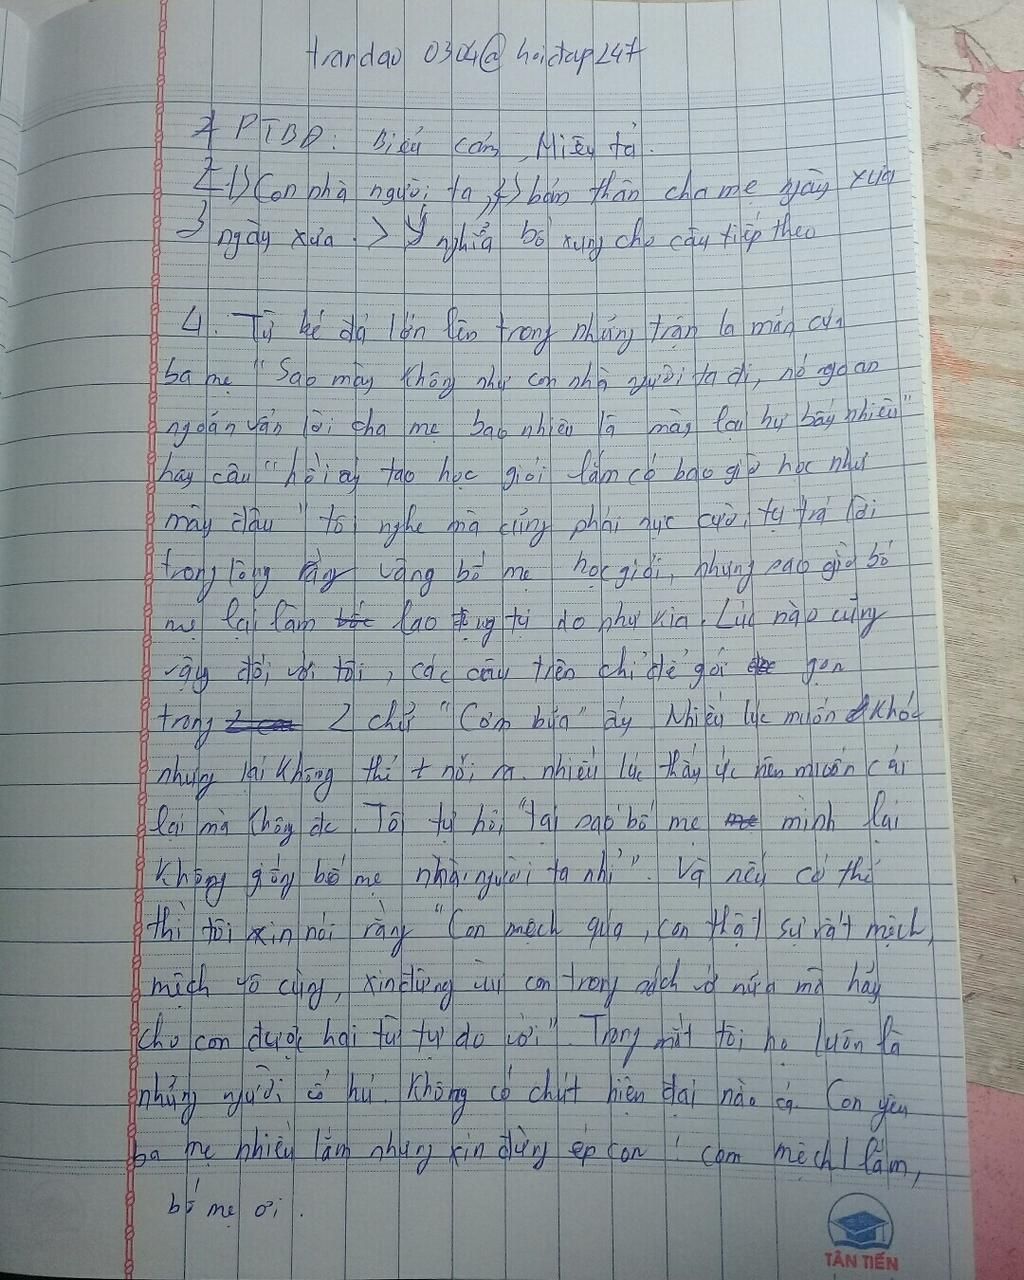 trandao 0304@hoidap247
1 PTBĐ: Biểu cảm, Miêu tả.
2 1) Con nhà người ta, 2) bản thân cha mẹ ngày xưa
3 ngày xưa > Ý nghĩa bổ xung cho câu tiếp theo
4. Từ bé đã lớn lên trong những trận la mắng của
ba mẹ "Sao mày không như con nhà người ta đi, nó ngoan
ngoãn vân lời cha mẹ bao nhiêu là mày lại hư bấy nhiêu"
hay câu "hồi ấy tao học giỏi lắm có bao giờ học như
mày đâu" tôi nghe mà cũng phải nực cười, tự trả lời
trong lòng vâng bố mẹ học giỏi, nhưng sao giờ bố
mẹ lại làm lao động tự do như kia. Lúc nào cũng
vậy đối với tôi, các câu trên chỉ để gói gọn
trong 2 chữ "Cơm bữa" ấy Nhiều lúc muốn khóc
nhưng lại không thể nổi. nhiều lúc thấy ức nên muốn cãi
lại mà không đc. Tôi tự hỏi "tại sao bố mẹ mình lại
không giống bố mẹ nhà người ta nhỉ". Và nếu có thể
thì tôi xin nói rằng "Con mệch quá, con thật sự rất mệch,
mệch vô cùng, xin đừng con trong sách vở nữa mà hãy
cho con được hai từ tự do với". Trong mắt tôi họ luôn là
những người cổ hủ. Không có chút hiện đại nào cả. Con yêu
ba mẹ nhiều lắm nhưng xin đừng ép con! con mệch lắm,
bố mẹ ơi.
TÂN TIẾN